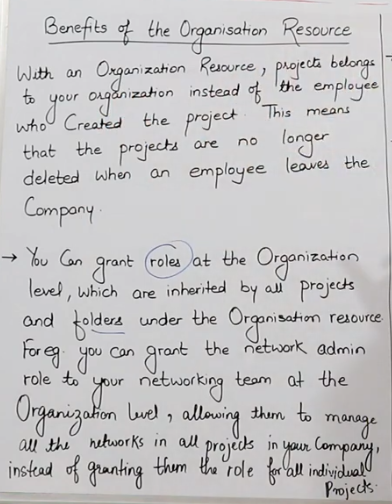 Benefits of the Organisation Resource
With an Organization Resource, projects belongs
to your organization instead of the employee
who Created the project. This means
that the projects are no longer
deleted when an employee leaves the
Company.
→ You Can grant roles at the Organization
level, which are inherited by all projects
and folders under the Organisation resource.
For eg. you can grant the network admin
role to your networking team at the
Organization level, allowing them to manage
all the networks in all projects in your Company,
instead of granting them the role for all individual
Projects.